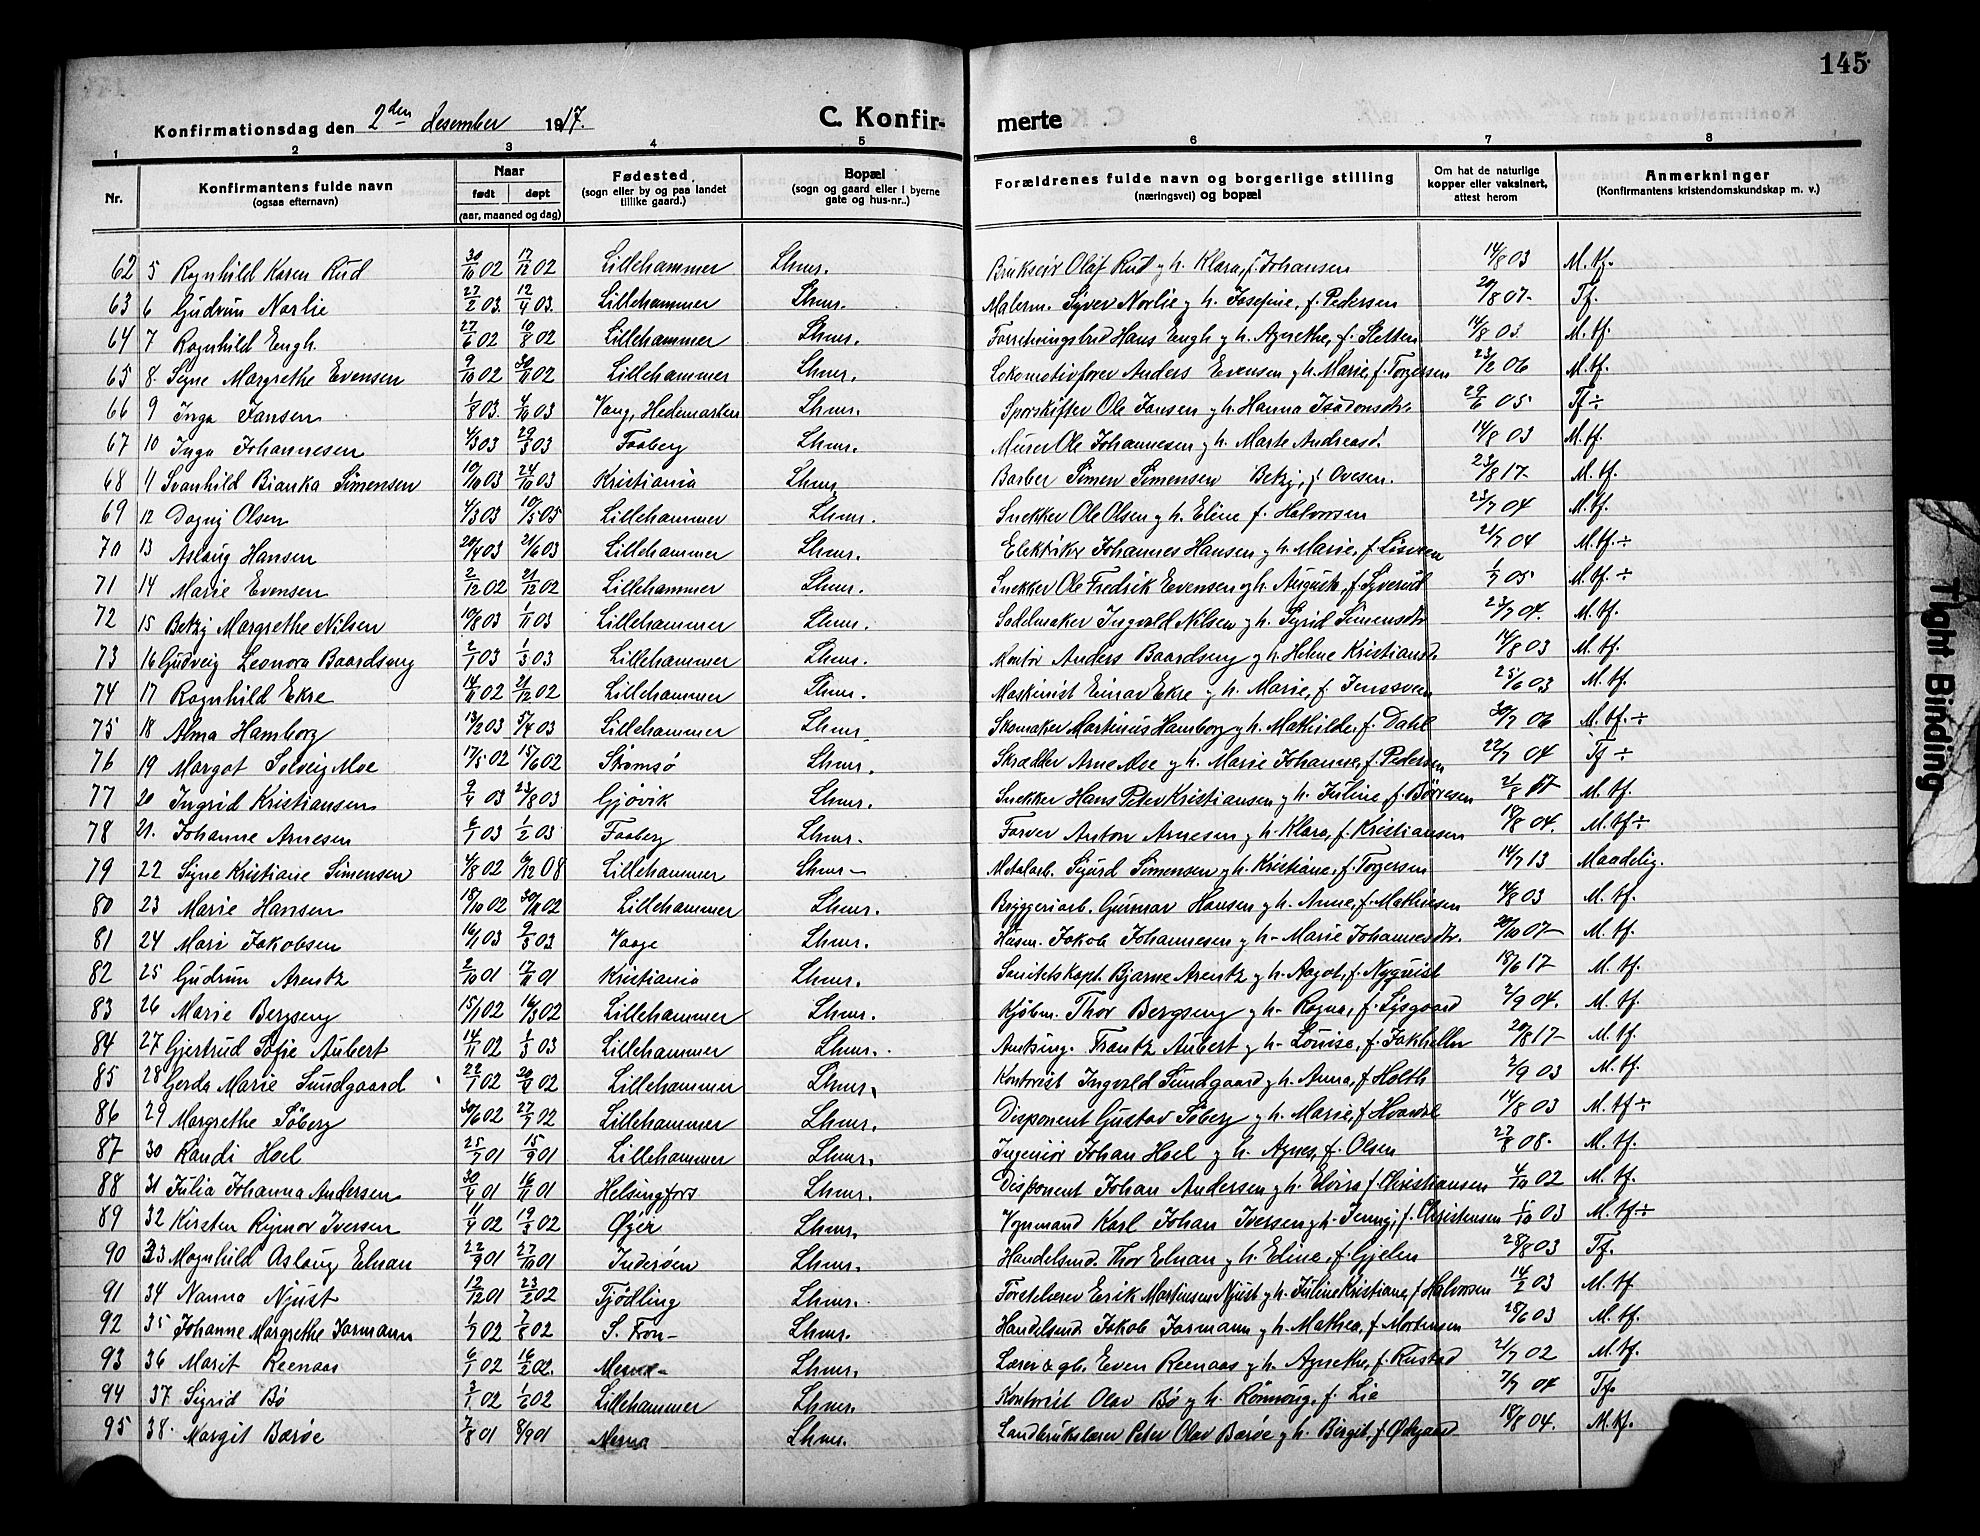 145
Konfirmationsdag den 2den desember 1917. C. Konfirmerte
1 2 3 4 5 6 7 8
Nr. Konfirmantens fulde navn (ogsaa efternavn) Naar født døpt (aar, maaned og dag) Fødested (sogn eller by og paa landet tillike gaard.) Bopæl (sogn og gaard eller i byerne gate og hus-nr.) Forældrenes fulde navn og borgerlige stilling (næringsvei) og bopæl Om hat de naturlige kopper eller vaksinert, attest herom Anmerkninger (Konfirmantens kristendomskundskap m. v.)
62 5 Ragnhild Karen Rud 30/10 02 17/12 02 Lillehammer Lhmr. Olaf Rud g h. Klara, f. Johansen 14/8 03 M. tf.
63 6 Gudrun Norlie 27/2 03. 12/4 03. Lillehammer Lhmr. Malerm. Syver Norlie g h. Josefine, f. Pedersen 20/8 07- Tf.
64 7 Ragnhild Engh. 27/6 02 10/8 02 Lillehammer Lhmr. Forretningsbud Hans Engh g h. Agnethe, f. Sletten 14/8 03. M. tf.
65 8. Signe Margrethe Evensen 9/10 02 30/11 02 Lillehammer Lhmr. Lokomotivfører Anders Evensen g h. Marie, f. Torgersen 23/2 06 M. tf.
66 9 Inga Jansen 1/8 03. 4/10 03 Vang, Hedemarken Lhmr. Sporskifter Ole Jansen g h. Hanna 29/6 05 Tf ÷
67 10 Inga Johannesen 4/3 03 29/3 03 Faaberg Lhmr. Murer Ole Johannesen g h. Marte Andreasd. 14/8 03 M. tf.
68 11 Svanhild Bianka Simensen 10/9 03 24/10 03 Kristiania Lhmr Barber Simen Simensen Betzy, f Ovesen. 23/8 17- M. tf.
69 12 Dagny Olsen 4/3 03 10/5 05 Lillehammer Lhmr. Snekker Ole Olsen g h. Eline f. Halvorsen 23/7 04 M. tf.
70 13 Aslaug Hansen 20/4 03 21/6 03 Lillehammer Lhmr. Elektriker Johannes Hansen g h. Marie, f. 21/7 04 M. tf. ÷
71 14 Marie Evensen 2/12 02 21/12 02 Lillehammer Lhmr. Snekker Ole Fredrik Evensen g h. Augusta, f. Syverud 1/7 05 M. tf. ÷
72 15 Betzy Margrethe Nilsen 10/8 03 1/11 03 Lillehammer Lhmr. Sadelmaker Ingvald Nilsen g h. Sigrid Simensdtr 23/7 04. M. tf.
73 16 Gudveig Leonora Baardseng 2/1 03 1/3 03 Lillehammer Lhmr. Kontor Anders Baardseng g h. Helene Kristiansd. 14/8 03 M. tf.
74 17 Ragnhild Ekre 14/11 02 21/12 02 Lillehammer Lhmr. Maskinist Einar Ekre g h. Marie, f. Jenssveen 25/6 03 M. tf.
75 18 Alma Hamborg 13/2 03 5/4 03 Lillehammer Lhmr. Skomaker Martinus Hamborg g h. Mathilde, f. Dahl 30/7 06 M. tf. ÷
76 19 Margot Solveig Moe 17/5 02 15/6 02 Strømsø Lhmr. Skrædder Arne Moe g h. Marie Johanne, f. Pedersen 22/7 04 Tf ÷
77 20 Ingrid Kristiansen 9/4 03 23/8 03 Gjøvik Lhmr. Snekker Hans Peter Kristiansen g h. Juline f. Børresen 2/8 17 M. tf.
78 21. Johanne Arnesen 6/1 03 1/2 03 Faaberg Lhmr. Farver Anton Arnesen g h. Klara, f. Kristiansen 18/8 04. M. tf ÷
79 22 Signe Kristiane Simensen 4/8 02 6/12 08 Lillehammer Lhmr- Metalarb. Sigurd Simensen g h. Kristiane, f. Torgersen 14/7 13 Maadelig.
80 23 Marie Hansen 18/10 02 30/11 02 Lillehammer Lhmr. Bryggeriarb. Gunnar Hansen g h. Anne, f. Mathiesen 14/8 03 M. tf.
81 24 Mari Jakobsen 16/1 03 9/3 03 Vaage Lhmr. Husm. Jakob Johannesen g h- Marie Johannesdtr. 20/10 07- M. tf.
82 25 Gudrun Arentz 2/10 01 17/11 01 Kristiania Lhmr. Sanitetskapt. Bjarne Arentz g h. Aagot, f. Nyquist 18/6 17- M. tf.
83 26 Marie Bergseng 15/1 02 16/3 02 Lillehammer Lhmr. Kjøbm. Thor Bergseng g h- Ragna, f. Lysgaard 2/9 04. M. tf.
84 27 Gjertrud Sofie Aubert 14/11 02 1/3 03 Lillehammer Lhmr. Amtsing. Frantz Aubert g h- Louise, f. Jakheller 20/8 17- M. tf.
85 28 Gerda Marie Sundgaard 22/7 02 30/11 02 Lillehammer Lhmr. Kontorist Ingvald Sundgaard g h. Anna, f. Holth 2/9 03 M. tf.
86 29 Margrethe Søberg 30/6 02 27/7 02 Lillehammer Lhmr. Disponent Gustav Søberg g h. Marie, f. 14/8 03 M. tf ÷
87 30 Randi Hoel 25/7 01 15/9 01 Lillehammer Lhmr. Ingeniør Johan Hoel g h. Agnes, f. Olsen 27/8 08. M. tf.
88 31 Julia Johanna Andersen 30/4 01 16/11 01 Helsingfors Lhmr. Disponent Johan Andersen g h. Elvira f. Christiansen 4/10 02 M. tf.
89 32 Kirsten Rigmor Iversen 11/4 02 19/5 02 Øyer Lhmr. Vognmand Karl Johan Iversen g h- Jenny, f. Christensen 1/10 03 M. tf ÷
90 33 Magnhild Aslaug Elnan 22/9 01 27/10 01 Inderøen Lhmr. Handelsmd. Thor Elnan g h. Eline, f. Gjelen 28/8 03 Tf.
91 34 Nanna Njust 12/12 01 23/2 02 Fjødling Lhmr. Forstelærer Erik Martinsen Njust g h. Juline Kristiane, f. Halvorsen 14/2 03 M. tf
92 35 Johanne Margrethe Jarmann 1/7 02 3/8 02 S. Fron- Lhmr. Handelsmd. Jakob Jarmann g h. Mathea, f. Mortensen 28/6 03 M. tf.
93 36 Marit Reenaas 6/1 02 16/2 02. Mesna- Lhmr. Lærer & gb. Even Reenaas g h. Agnethe, f. Rustad 2/7 02 M. tf.
94 37 Sigrid Bø 3/1 02 1/6 02 Lillehammer Lhmr. Kontorist Olav Bø g h. Rønnaug, f. Lie 7/7 04 Tf.
95 38. Margit Barøe 7/8 01 8/9 01 Mesna Lhmr. Landbrukslærer Peter Olav Barøe g h. Birgit, f. Ødegaard 18/8 04. M. tf.
Tight Binding